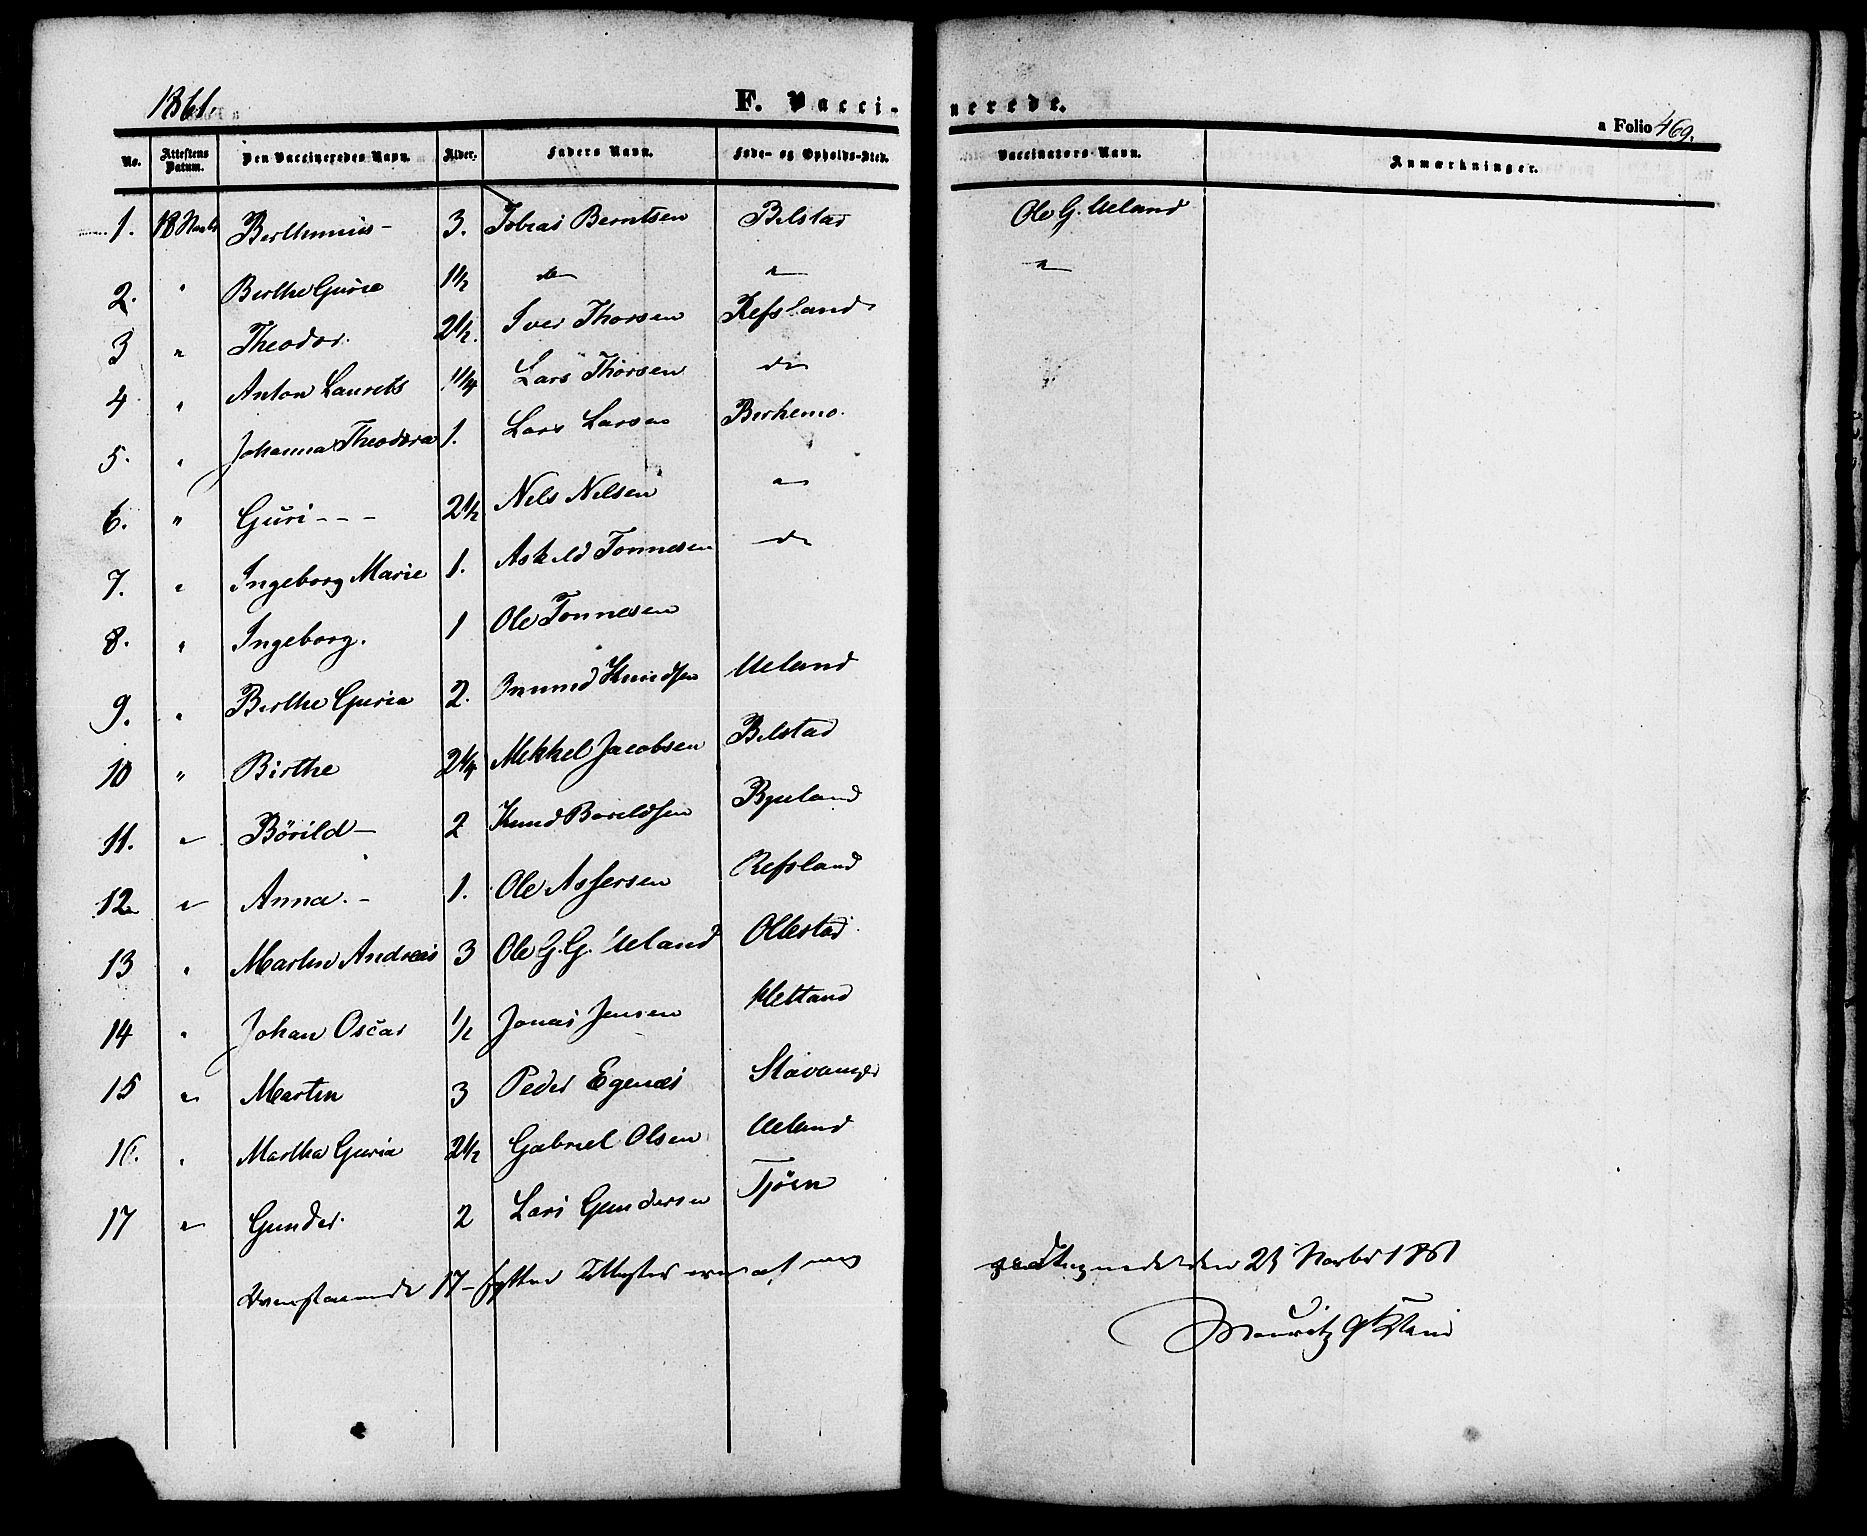 1861.
F. Vacci- nerede.
a Folio 469.
No. Attestens Datum. Den Vaccineredes Navn. Alder. Faders Navn. Føde- og Opholds-Sted. Vaccinators Navn. Anmærkninger.
1. 18 Novbr Berthinius - 3. Tobias Berntsen Bilstad Ole G. Ueland
2. " Berthe Gurie 1 1/2 do " "
3 " Theodor. 2 1/2. Iver Thorsen Refsland
4 " Anton Laurits 1 1/4 Lars Thorsen do
5. " Johanna Theodora 1. Lars Larsen Birkemo.
6. " Guri - - - 2 1/2 Nels Nelsen "
7. " Ingeborg Marie 1. Askild Tonnesen do
8. " Ingeborg. 1 Ole Tonnesen
9. " Berthe Guria 2. Onund Knudsen Ueland
10 " Birthe 2 1/4 Mikkel Jacobsen Bilstad
11. " Börild - 2 Knud Boreldsen Bjuland
12 " Anna. - 1. Ole Assersen Refsland
13 " Martin Andreas 3 Ole G. G. Ueland Ollestad
14 " Johan Oscar 1/2 Jonas Jensen Hetland
15 " Martin 3 Peder Egenæs Stavanger
16. " Martha Guria 2 1/2 Gabriel Olsen Ueland
17 " Gunder. 2 Lars Gundersen Tjörn
17 - sytten Attester ere af mig
den 23 Novbr 1861
Mauritz